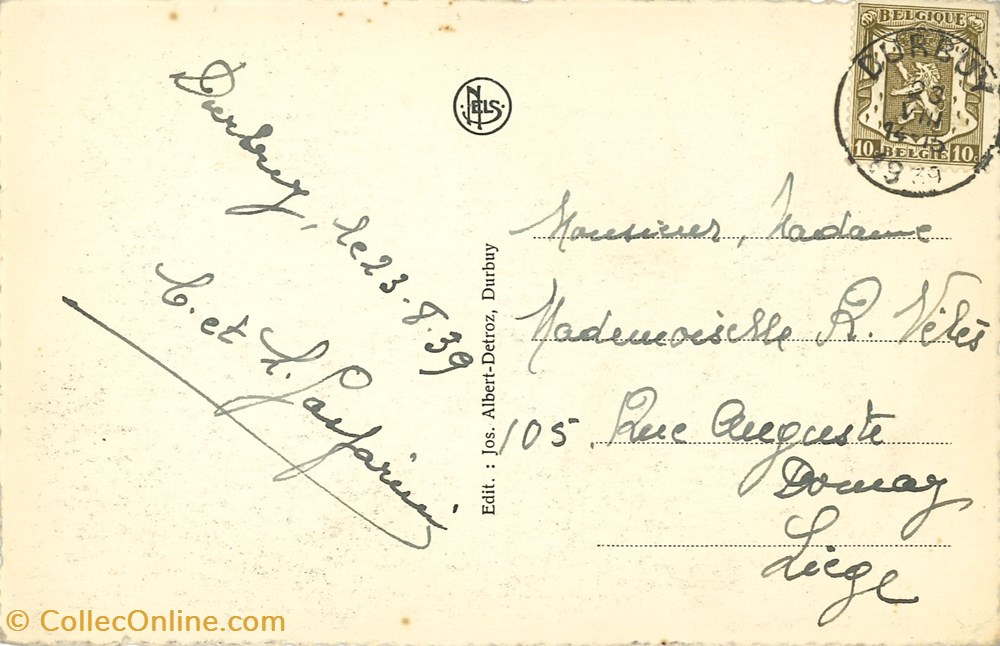 Durbuy, le 23.8.39
et
NELS
Edit. : Jos. Albert-Detroz, Durbuy
BELGIQUE
10c BELGIË 10c
DURBUY
23
VIII
1939
Monsieur, Madame
Mademoiselle R. Vélès
105, Rue Auguste
Donnay
Liège
© CollecOnline.com